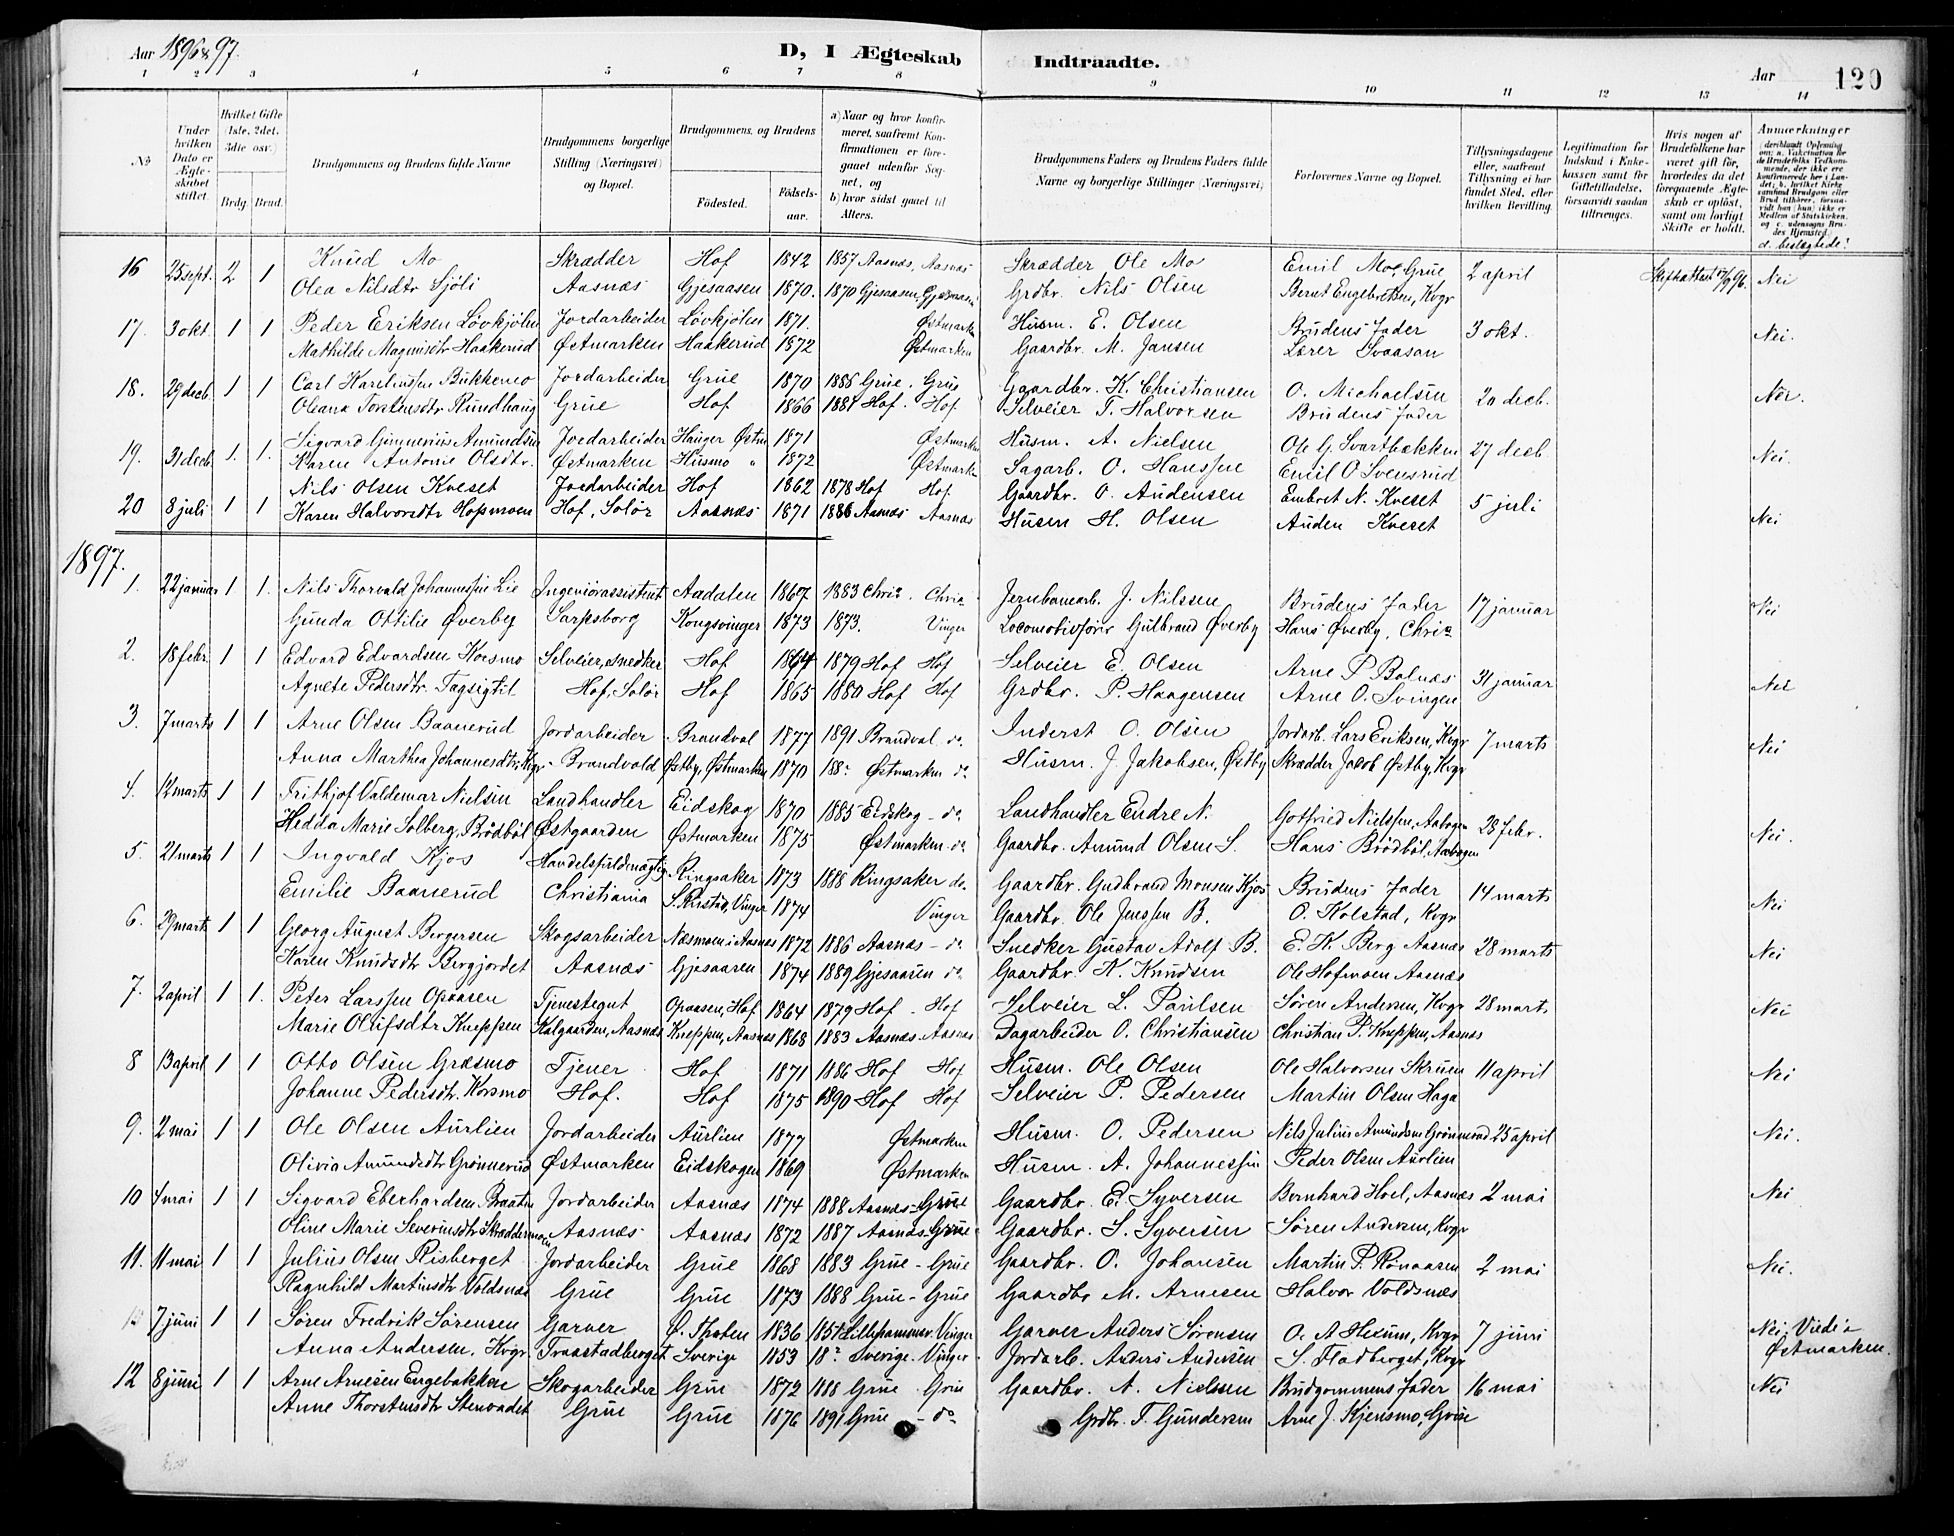 Aar 1896 & 97.
D, I Ægteskab Indtraadte.
Aar 120
1 2 3 4 5 6 7 8 9 10 11 12 13 14
No
Under hvilken Dato er Ægteskabet stiftet.
Hvilket Gifte (1ste, 2det, 3die osv.)
Brdg. Brud.
Brudgommens og Brudens fulde Navne
Brudgommens borgerlige Stilling (Næringsvei) og Bopæl.
Brudgommens og Brudens
Födested. Födselsaar.
a) Naar og hvor konfirmeret, saafremt Konfirmationen er foregaaet udenfor Sognet, og b) hvor sidst gaaet til Alters.
Brudgommens Faders og Brudens Faders fulde Navne og borgerlige Stillinger (Næringsvei)
Forlovernes Navne og Bopæl.
Tillysningsdagene eller, saafremt Tillysning ei har fundet Sted, efter hvilken Bevilling.
Legitimation for Indskud i Enkekassen samt for Giftetilladelse, forsaavidt saadan tiltrænges.
Hvis nogen af Brudefolkene har været gift før, hvorledes da det foregaaende Ægteskab er oplöst, samt om lovligt Skifte er holdt.
Anmærkninger (deriblandt Oplysning om: a. Vakcination for de Brudefolks Vedkommende, der ikke ere konfirmerede her i Landet; b. hvilket Kirkesamfund Brudgom eller Brud tilhører, forsaavidt han (hun) ikke er Medlem af Statskirken, og c. udensogns Brudes Hjemsted.)
d. beslægtede?
16 25 sept. 2 1 Knud Mo Skrædder Hof 1842 1857 Aasnæs, Aasnæs Skrædder Ole Mo Emil Moe, Grue 2 april Skifteattest Nei
Olea Nilsdtr Sjöli Aasnæs Gjesaasen 1870. 1870 Gjesaasen, Gjesaasen Grdbr. Nils Olsen Bernt Engebretsen, Kvgr
17. 3 okt. 1 1 Peder Eriksen Løvkjølen Jordarbeider Løvkjølen 1871. Østmarken Husm. E. Olsen Brudens Fader 3 okt. Nei.
Mathilde Magnusdtr Haakerud Østmarken Haakerud 1872 Østmarken Gaardbr. M. Jansen Lærer Svaasan
18. 29 decb 1 1 Carl Karelinssen Bukkemo Jordarbeider Grue 1870 1886 Grue. Grue Gaardbr. K. Christiansen O. Michaelsen 20 decb. Nei.
Oleana Torstensdtr Rundhaug Grue Hof 1866 1881 Hof. Hof. Selveier T. Halvorsen Brudens Fader
19. 31 decb 1. 1. Sigvard Amundsen Jordarbeider Hauger Østm 1871 Østmarken Husm. A. Nielsen Ole G. Svartbækken 27 decb. Nei.
Karen Antonie Olsdtr. Østmarken Husmo " 1872 Østmarken Sagarb. O. Hanssen Emil O Svensrud
20 8 juli 1 1 Nils Olsen Kveset Jordarbeider Hof 1862 1878 Hof Hof. Gaardbr. O. Audensen Embret N. Kveset 5 juli Nei
Karen Halvorsdtr Hofsmoen Hof, Solør Aasnæs 1871 1886 Aasnæs Aasnæs Husm H. Olsen Auden Kveset
1897.
1. 22 januar 1 1. Nils Thorvald Johannessen Lie Ingeniørassistent Aadalen 1867 1883 Chria. Chria Jernbanearb. J. Nilssen Brudens Fader 17 januar Nei
Gunda Ottilie Øverby Sarpsborg Kongsvinger 1873 1873. Vinger Locomotivfører Gulbrand Øverby Hans Øverby, Chria
2. 18 febr. 1 1 Edvard Edvardsen Korsmo Selveier, snedker Hof 1864 1879 Hof Hof Selveier E. Olsen Arne P Bolnæs 31 januar Nei
Agnete Pedersdtr. Tagsigtil Hof, Solør Hof 1865 1880 Hof Hof Grdbr. P. Haagensen Arne O. Svingen
3. 7 marts 1 1 Arne Olsen Baanerud Jordarbeider Brandval 1877 1891 Brandval do. Inderst O. Olsen Jordarb. Lars Eriksen, Kvgr 7 marts Nei
Anna Marthea Johannesdtr, Kvgr. Brandvold Østby, Østmarken 1870 188? Østmarken do Husm. J. Jakobsen, Østby Skrædder Jacob Østby, Kvgr
4. 12 marts 1 1 Frithjof Valdemar Nielsen Landhandler Eidskog 1870 1885 Eidskog - do. Landhandler Endre N. Gotfried Nielssen, Aabogen 28 febr. Nei.
Hedda Marie Solberg, Brödböl Østgaarden Østmarken 1875 Østmarken do Gaardbr. Amund Olsen S. Hans Brödböl, Aabogen
5. 21 marts 1 1 Ingvald Kjos Handelsfuldmægtig Ringsaker 1873 1888 Ringsaker do. Gaardbr. Gudbrand Monsen Kjos Brudens Fader 14 marts Nei
Emilie Baanerud Christiania S. Rustad, Vinger 1874 Vinger Gaardbr. Ole Jenssen B. O. Kolstad, Kvgr
6. 29 marts 1 1 Georg August Bergersen Skogsarbeider Næsmoen i Aasnæs 1872 1886 Aasnæs - do Snedker Gustav Adolf B. E. K. Berg Aasnæs 28 marts Nei
Karen Knudsdtr Bergjordet Aasnæs Gjesaasen 1874 1889 Gjesaasen do Gaardbr. K. Knudsen Ole Hofmoen Aasnæs
7. 2 april 1 1. Peter Larssen Opaasen Tjenestegut Opaasen, Hof 1864 1879 Hof - Hof Selveier L. Paulsen Søren Andersen, Kvgr 28 marts Nei
Marie Olufsdtr Kneppen Kalgaarden, Aasnæs Kneppen, Aasnæs 1868 1883 Aasnæs Aasnæs Dagarbeider O. Christiansen Christian P. Kneppen, Aasnæs
8 13 april 1 1 Otto Olsen Græsmo Tjener Hof 1871 1886 Hof Hof Husm. Ole Olsen Ole Halvorsen Skruen 11 april Nei
Johanne Pedersdtr. Korsmo Hof. Hof 1875 1890 Hof Hof Selveier P. Pedersen Martin Olsen Haga
9. 2 mai 1 1 Ole Olsen Aurlien Jordarbeider Aurlien 1877 Østmarken Husm. O. Pedersen Nils Julius Amundsen Grønnerud 25 april Nei.
Olivia Amundsdtr Grønnerud Østmarken Eidskogen 1869 Østmarken Husm. A. Johannessen Peder Olsen Aurlien
10 7 mai 1 1 Sigvard Eberhardsen Braaten Jordarbeider Aasnæs 1874 1888 Aasnæs-Grue Gaardbr. E. Syversen Bernhard Hoel, Aasnæs 2 mai Nei
Oline Marie Severinsdtr Skræddermoen Aasnæs Aasnæs 1872 1887 Aasnæs-Grue Gaardbr. S. Syversen Søren Andersen, Kvgr
11. 11 mai 1 1 Julius Olsen Risberget Jordarbeider Grue 1868 1883 Grue - Grue Gaardbr. O. Johansen Martin P. Rønaasen 2 mai Nei.
Ragnhild Martinsdtr Voldsnæs Grue Grue 1873 1888 Grue - Grue Gaardbr M. Arnesen Halvor Voldsnæs
7 juni 1 1 Søren Fredrik Sørensen Garver Ø. Thoten 1836 1851 Lillehammer. Vinger Garver Anders Sørensen O. A Hexum, Kvgr 7 juni Nei Viede i Østmarken.
Anna Andersen, Kvgr Traastadberget Sverige 1853 18? Sverige. Vinger Jordarb. Anders Andersen S. Fladberget, Kvgr
12 8 juni 1 1 Arne Arnesen Engebakken Skogarbeider Grue 1872 1888 Grue. Grue Gaardbr. A. Nielssen Brudgommens Fader 16 mai Nei
Anne Thorstensdtr Stenvadet Grue Grue 1876 1891 Grue - do Grdbr. T. Gundersen Arne J. Kjensmo, Grue